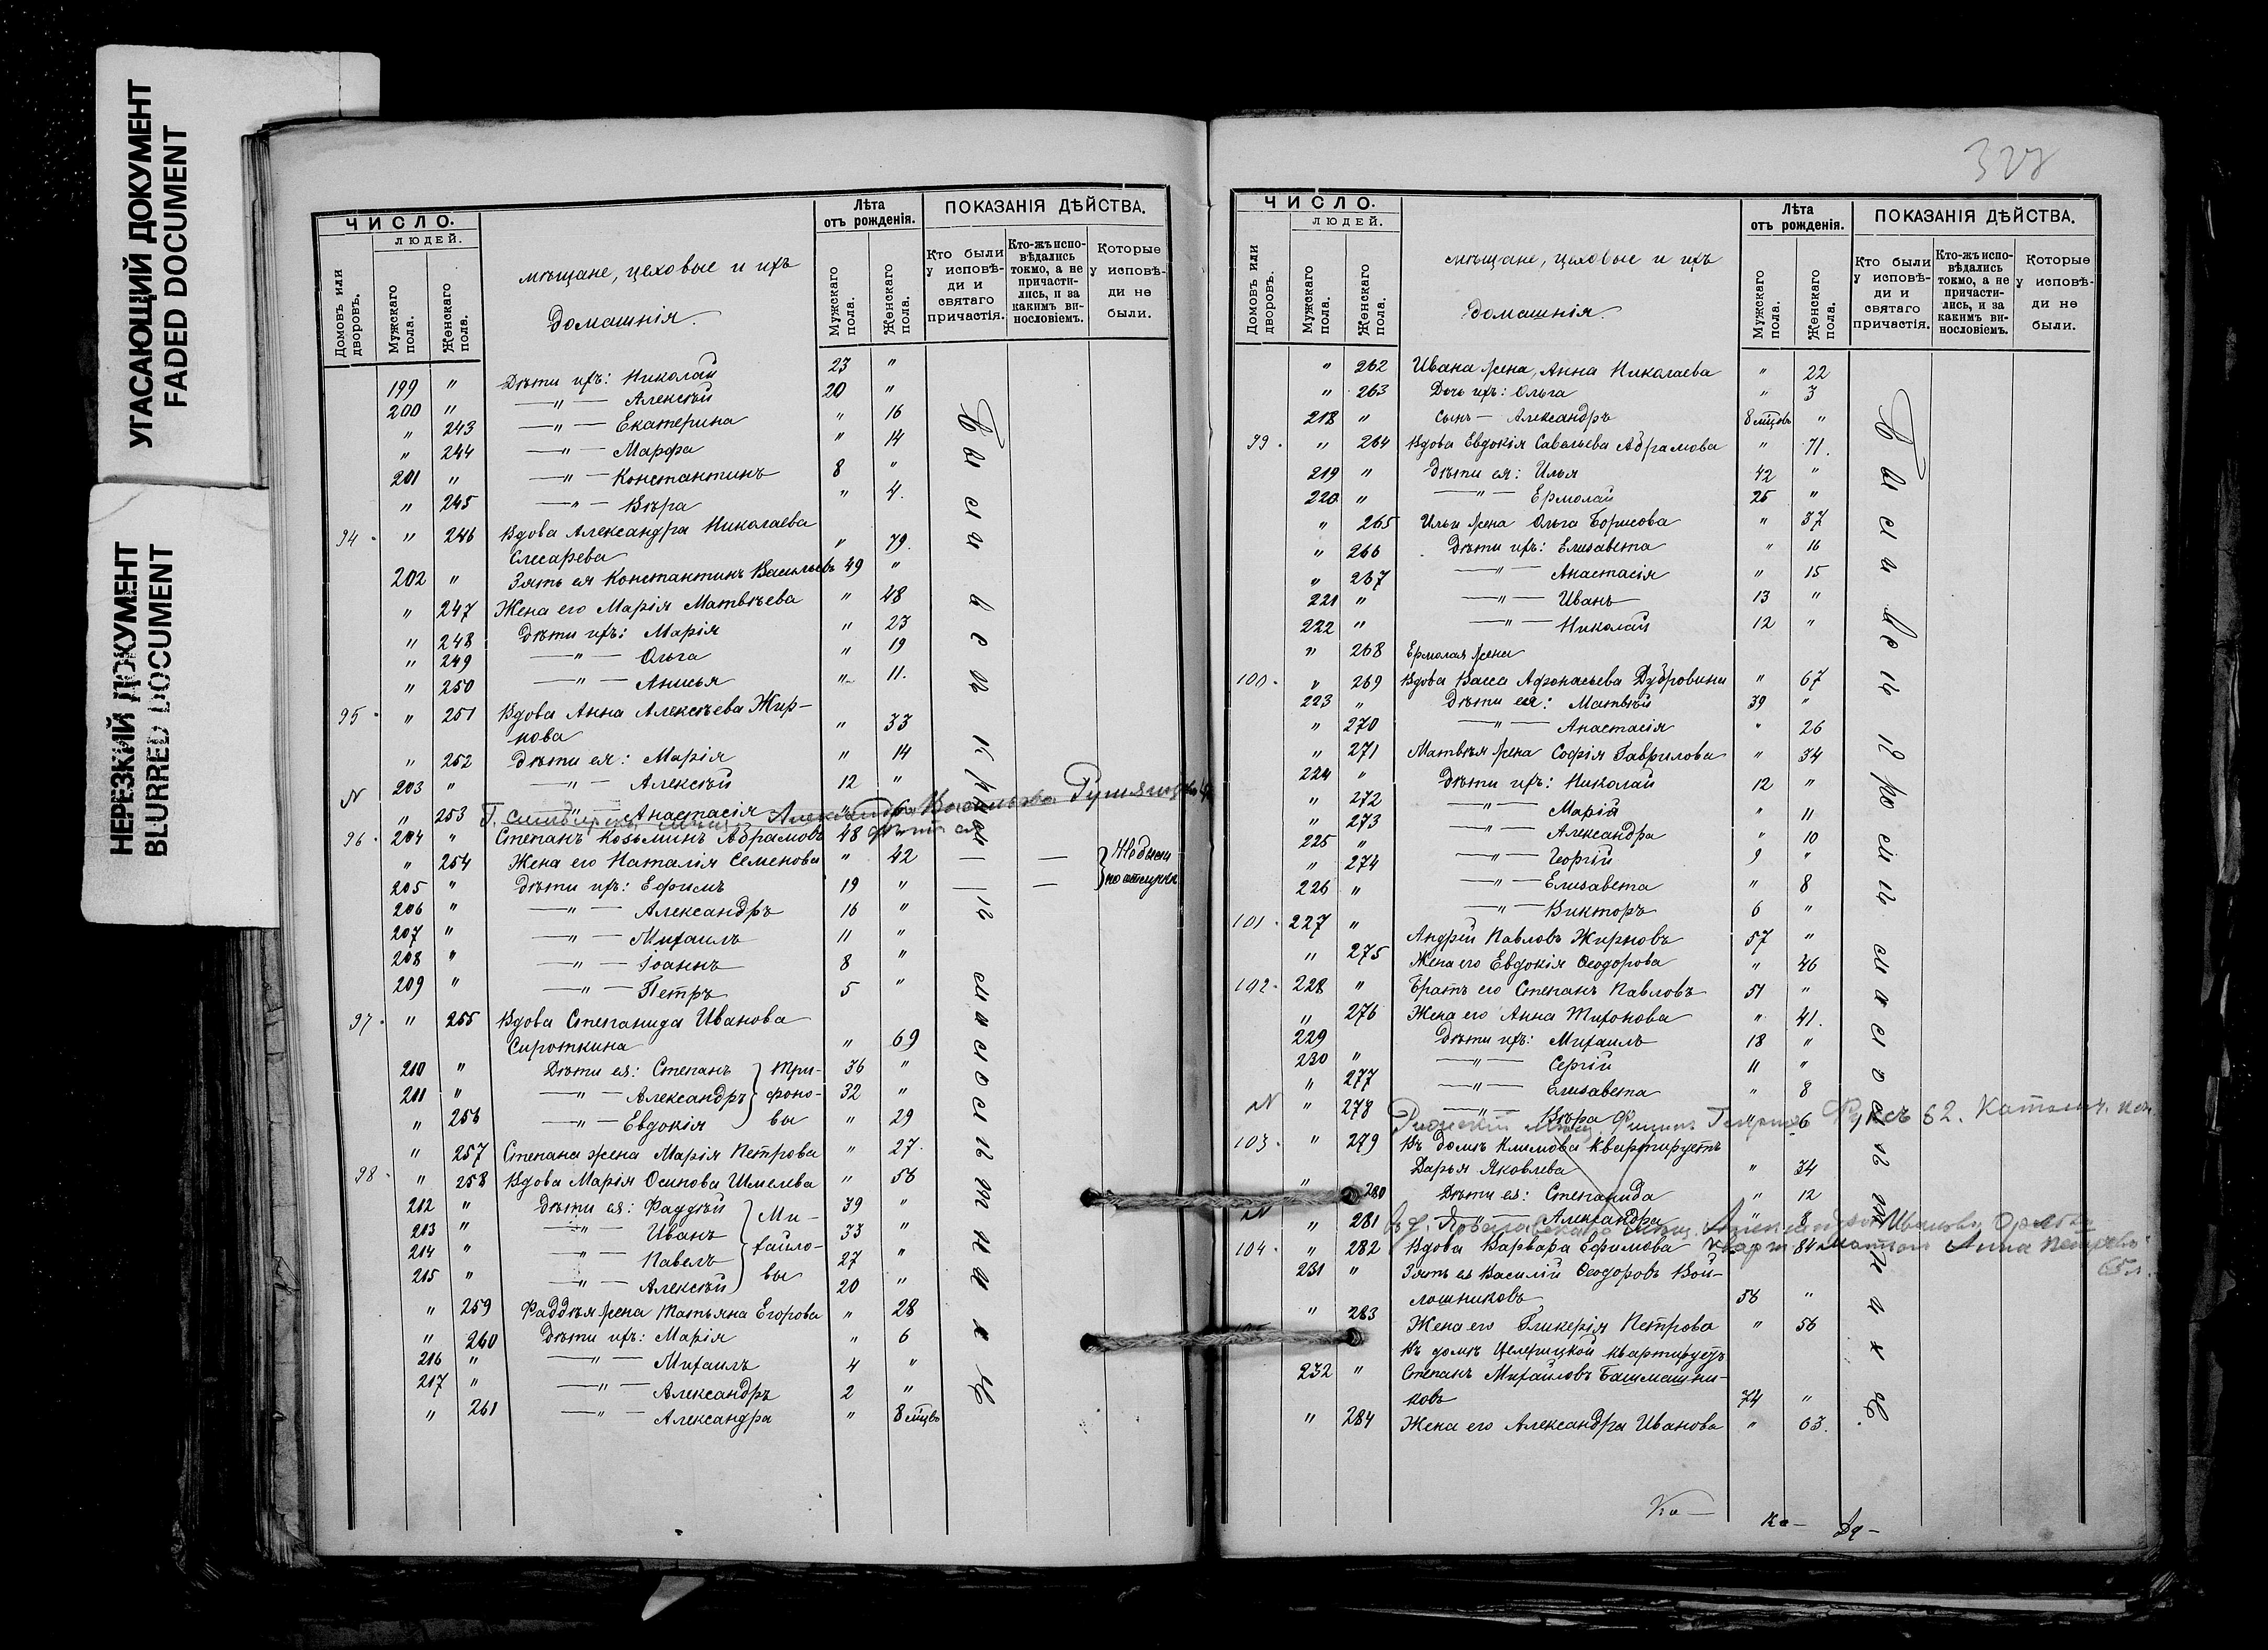 УГАСАЮЩИЙ ДОКУМЕНТ
FADED DOCUMENT
НЕРЕЗКИЙ ДОКУМЕНТ
BLURRED DOCUMENT
ЧИСЛО.
ЛЮДЕЙ.
Домовъ или дворовъ.
Мужскаго пола.
Женскаго пола.
мѣщане, цеховые и ихъ
домашнія.
Лѣта
отъ рожденія.
Мужскаго пола.
Женскаго пола.
ПОКАЗАНІЯ ДѢЙСТВА.
Кто были у исповѣди и святаго причастія.
Кто-жъ исповѣдались токмо, а не причастились, и за какимъ винословіемъ.
Которые у исповѣди не были.
199 " Дѣти ихъ: Николай 23 "
200 " — " — Алексѣй 20 "
" 243 — " — Екатерина " 16
" 244 — " — Марѳа " 14
201 " — " — Константинъ 8 "
" 245 — " — Вѣра " 4.
94. " 246 Вдова Александра Николаева
Слесарева " 79.
202 " Зять ея Константинъ Васильевъ 49 "
" 247 Жена его Марія Матвѣева " 48
" 248 Дѣти ихъ: Марія " 23
" 249 — " — Ольга " 19
" 250 — " — Анисья " 11.
95. " 251 Вдова Анна Алексѣева Жир-
нова " 33
" 252 Дѣти ея: Марія " 14
203 " — " — Алексѣй 12 "
" 253 — " — Анастасія " 6
Александра Васильева
96. 204 " Степанъ Козьминъ Абрамовъ 48
" 254 Жена его Наталія Семенова " 42 — —
205 " Дѣти ихъ: Ефимъ 19 " — —
Не были
по отлучкѣ
206 " — " — Александръ 16 "
207 " — " — Михаилъ 11 "
208 " — " — Іоаннъ 8 "
209 " — " — Петръ 5 "
97. " 255 Вдова Степанида Иванова
Сироткина " 69
210 " Дѣти ея: Степанъ } Три- 36 "
211 " — " — Александръ } фоно- 32 "
" 256 — " — Евдокія } вы " 29
" 257 Степана жена Марія Петрова " 27.
98. " 258 Вдова Марія Осипова Шмелева " 56
212 " Дѣти ея: Фаддѣй } Ми- 39 "
213 " — " — Иванъ } хайло- 33 "
214 " — " — Павелъ } вы 27 "
215 " — " — Алексѣй } 20 "
" 259 Фаддѣя жена Татьяна Егорова " 28
" 260 Дѣти ихъ: Марія " 6
216 " — " — Михаилъ 4 "
217 " — " — Александръ 2 "
" 261 — " — Александра " 8 мцвъ
327
ЧИСЛО.
ЛЮДЕЙ.
Домовъ или дворовъ.
Мужскаго пола.
Женскаго пола.
мѣщане, цеховые и ихъ
домашнія.
Лѣта
отъ рожденія.
Мужскаго пола.
Женскаго пола.
ПОКАЗАНІЯ ДѢЙСТВА.
Кто были у исповѣди и святаго причастія.
Кто-жъ исповѣдались токмо, а не причастились, и за какимъ винословіемъ.
Которые у исповѣди не были.
" 262 Ивана жена, Анна Николаева " 22
" 263 Дочь ихъ: Ольга " 3
218 " Сынъ — Александръ 8 мцовъ "
99. " 264 Вдова Евдокія Савельева Абрамова " 71.
219 " Дѣти ея: Илья 42 "
220 " — " — Ермолай 25 "
" 265 Ильи жена Ольга Борисова " 37
" 266 Дѣти ихъ: Елисавета " 16
" 267 — " — Анастасія " 15
221 " — " — Иванъ 13 "
222 " — " — Николай 12 "
" 268 Ермолая жена
100. " 269 Вдова Васса Афонасьева Дубровина " 67
223 " Дѣти ея: Матвѣй 39 "
" 270 — " — Анастасія " 26
" 271 Матвѣя жена Софія Гаврилова " 34
224 " Дѣти ихъ: Николай 12 "
" 272 — " — Марія " 11
" 273 — " — Александра " 10
225 " — " — Георгій 9 "
" 274 — " — Елисавета " 8
226 " — " — Викторъ 6 "
101. 227 " Андрей Павловъ Жирновъ 57 "
" 275 Жена его Евдокія Ѳеодорова " 46
102. 228 " Братъ его Степанъ Павловъ 51 "
" 276 Жена его Анна Тихонова " 41.
229 Дѣти ихъ: Михаилъ 18 "
230 " — " — Сергій 11 "
" 277 — " — Елисавета " 8
" 278 — " — Вѣра " 6
103. " 279 Въ домѣ Климова квартируетъ
Дарья Яковлева " 34
" 280 Дѣти ея: Степанида " 12
" 281 — " — Александра " 8
104. " 282 Вдова Варвара Ефимова 84
231 " Зять ея Василій Ѳеодоровъ Вой-
лошниковъ 58 "
" 283 Жена его Гликерія Петрова " 56
Въ домѣ Целерицкой квартируетъ
232 " Степанъ Михайловъ Башмашни-
ковъ 74 "
" 284 Жена его Александра Иванова " 63.
Ко—